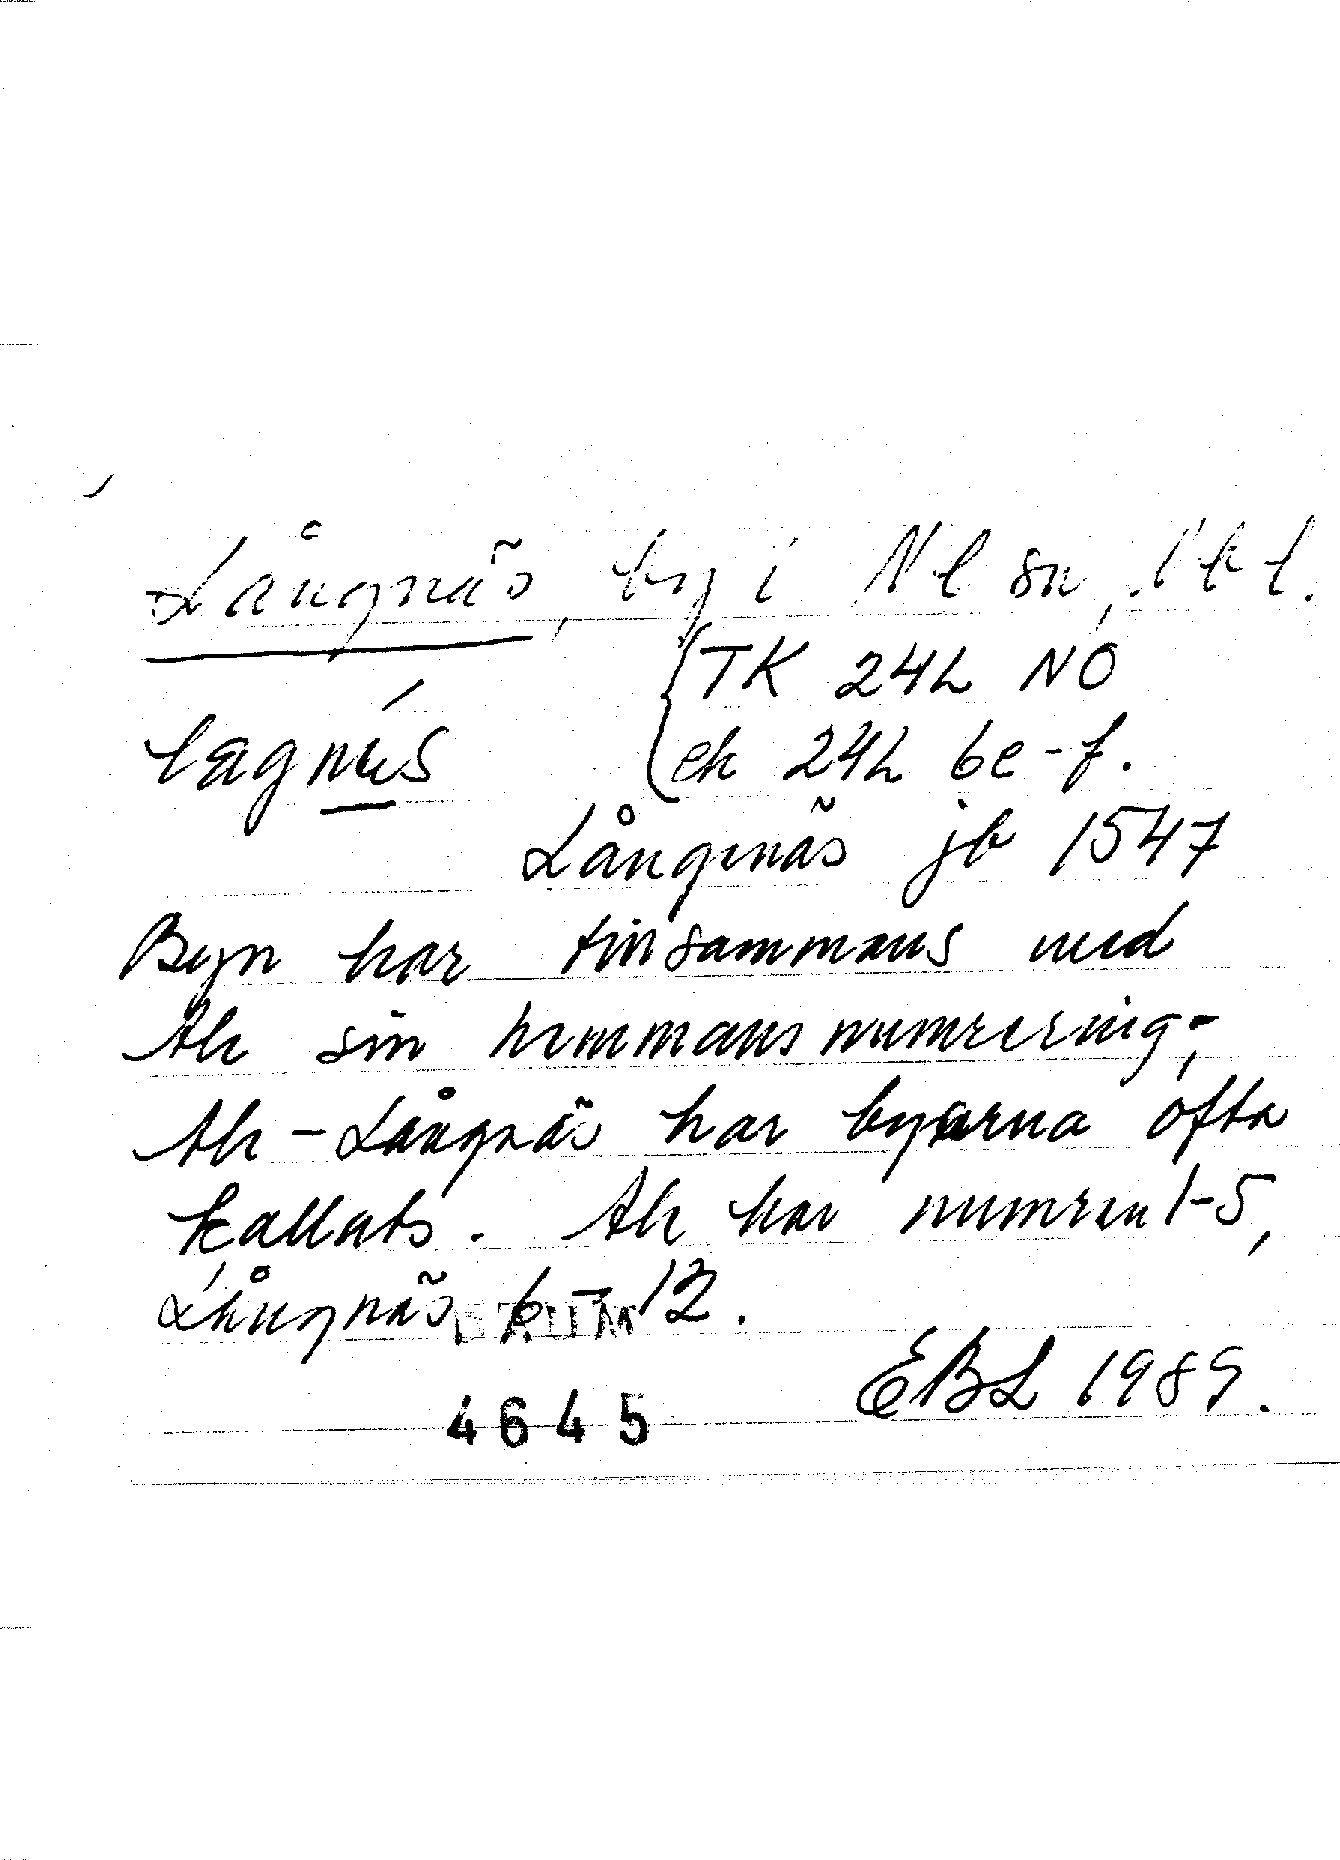 Långnäs, by i Nl sn, Nbl.
TK 24L NO
lagnäs
ek 24L 6e-f.
Långenäs jb 1547
Byn har tillsammans med
Ale sin hemmansnumrering;
Ale-Långnäs har byarna ofta
kallats. Ale har numren 1-5,
Långnäs 6-12.
DAUM
EBL 1989.
4645